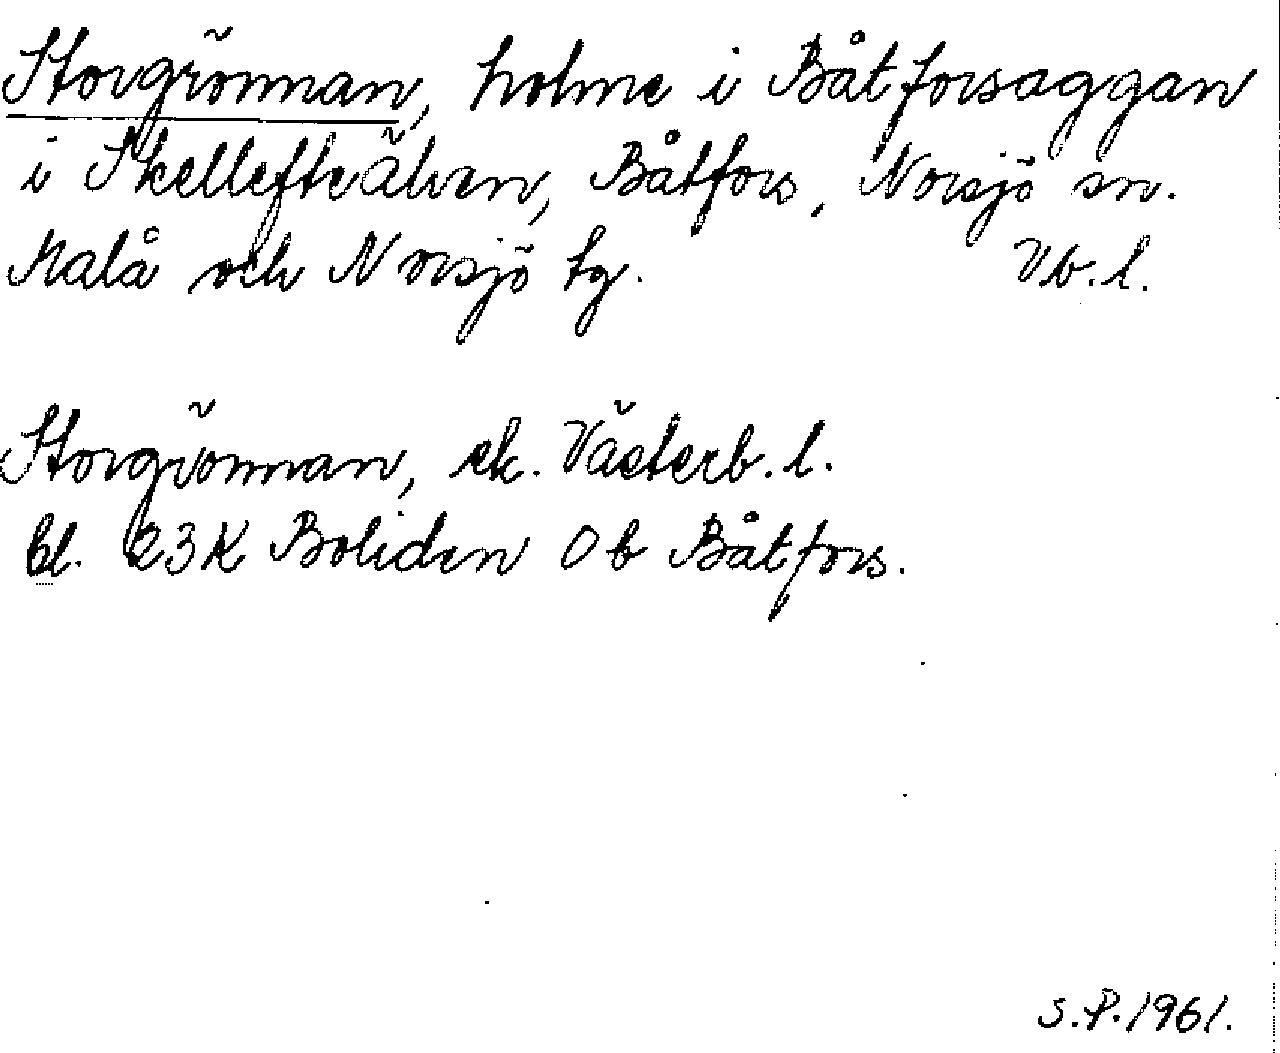 Storgrönnan, holme i Båtforsaggan
i Skellefteälven, Båtfors, Norsjö sn.
Malå och Norsjö tg. Vb. l.
Storgrönnan, ek. Västerb. l.
bl. 23K Boliden 0b Båtfors.
S.P. 1961.